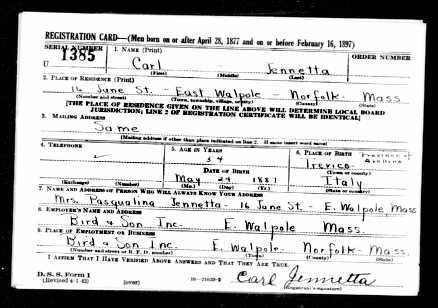 REGISTRATION CARD—(Men born on or after April 28, 1877 and on or before February 16, 1897)
SERIAL NUMBER 1. NAME (Print) ORDER NUMBER
U 1385 Carl - Jennetta
(First) (Middle) (Last)
2. PLACE OF RESIDENCE (Print)
16 June St. - East Walpole - Norfolk - Mass
(Number and street) (Town, township, village, or city) (County) (State)
[THE PLACE OF RESIDENCE GIVEN ON THE LINE ABOVE WILL DETERMINE LOCAL BOARD
JURISDICTION; LINE 2 OF REGISTRATION CERTIFICATE WILL BE IDENTICAL]
3. MAILING ADDRESS
Same
[Mailing address if other than place indicated on line 2. If same insert word same]
4. TELEPHONE 5. AGE IN YEARS 6. PLACE OF BIRTH
54 Province of Avellino
DATE OF BIRTH Trevico
(Town or county)
May 24 1887 Italy
(Exchange) (Number) (Mo.) (Day) (Yr.) (State or country)
7. NAME AND ADDRESS OF PERSON WHO WILL ALWAYS KNOW YOUR ADDRESS
Mrs. Pasqualina Jennetta - 16 June St. - E. Walpole Mass
8. EMPLOYER'S NAME AND ADDRESS
Bird & Son Inc. E. Walpole Mass
9. PLACE OF EMPLOYMENT OR BUSINESS
Bird & Son Inc. E Walpole - Norfolk - Mass.
(Number and street or R. F. D. number) (Town) (County) (State)
I AFFIRM THAT I HAVE VERIFIED ABOVE ANSWERS AND THAT THEY ARE TRUE.
D. S. S. Form 1
(Revised 4-1-42) (over) 16—21630-2 Carl Jennetta
(Registrant's signature)